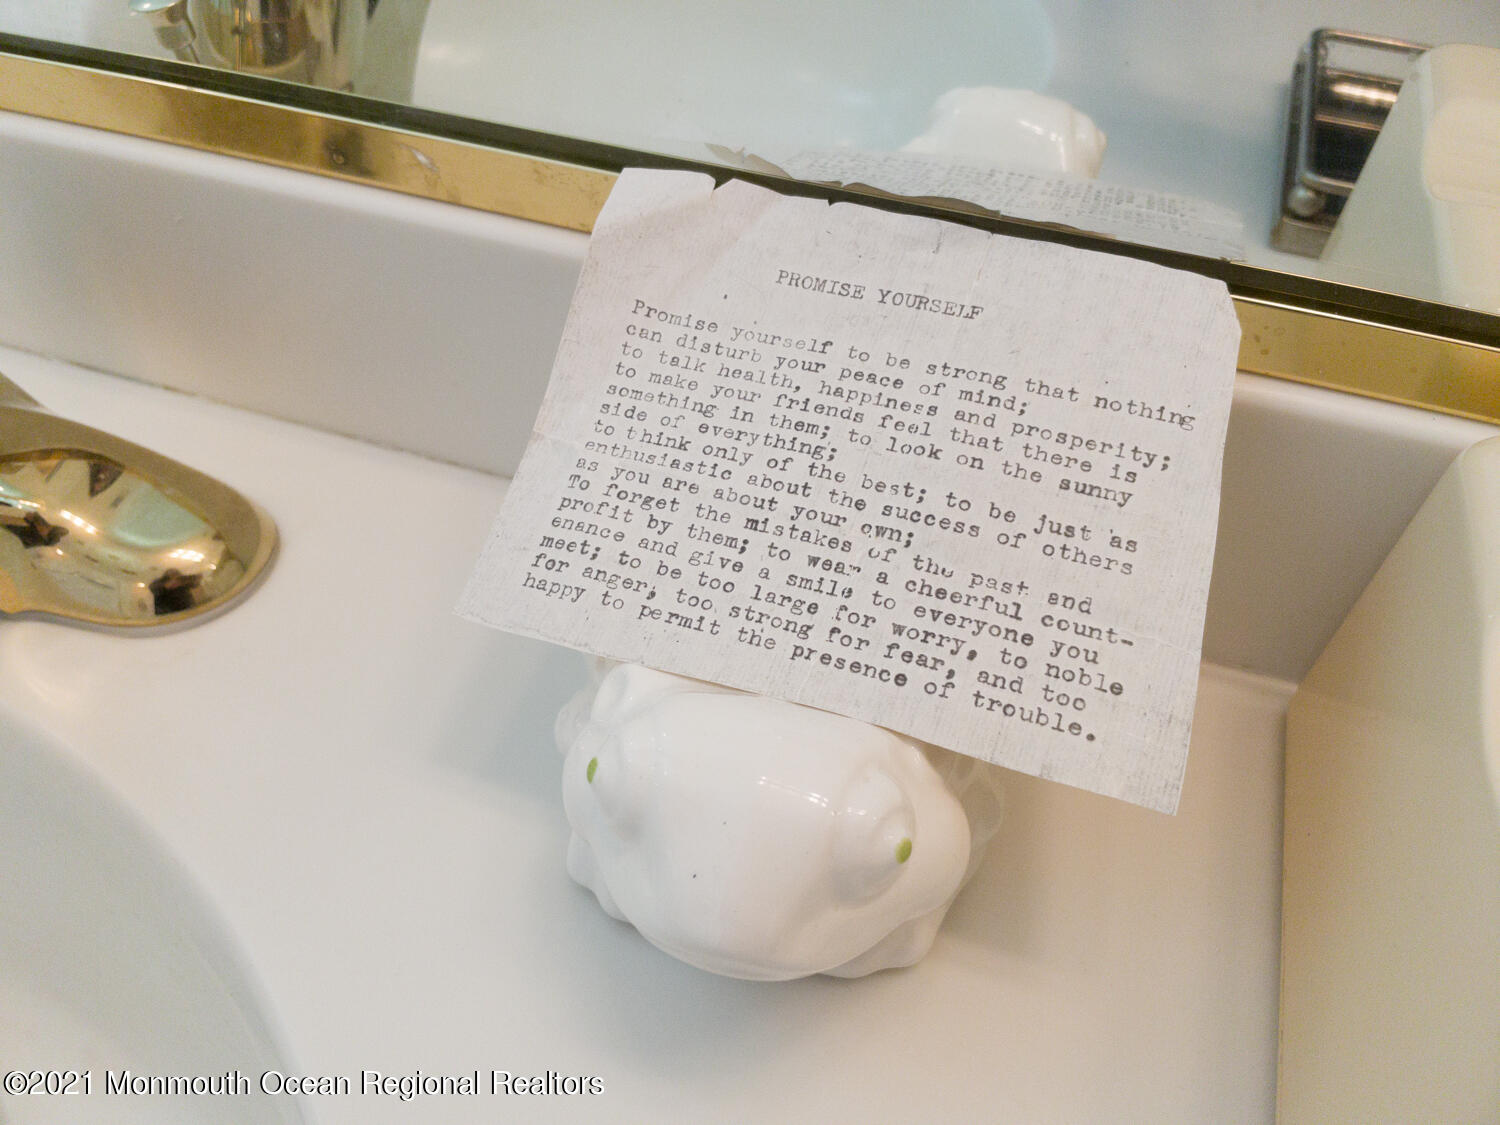 PROMISE YOURSELF
Promise yourself to be strong that nothing
can disturb your peace of mind;
to talk health, happiness and prosperity;
to make your friends feel that there is
something in them; to look on the sunny
side of everything;
to think only of the best; to be just as
enthusiastic about the success of others
as you are about your own;
To forget the mistakes of the past and
profit by them; to wear a cheerful count-
enance and give a smile to everyone you
meet; to be too large for worry, to noble
for anger, too strong for fear, and too
happy to permit the presence of trouble.
©2021 Monmouth Ocean Regional Realtors